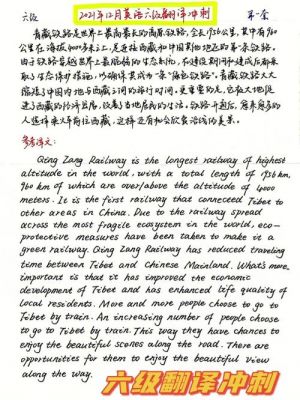 六级 2021年12月英语六级翻译冲刺 第一套
青藏铁路是世界上最高最长的高原铁路,全长1956公里,其中有960
公里在海拔4000多米之上,是连接西藏和中国其他地区的第一条铁路。
由于铁路穿越世界上最脆弱的生态系统,在建设期间和建成后都采
取了生态保护措施,以确保其成为"绿色铁路"。青藏铁路大大
缩短了中国内地与西藏之间的旅行时间。更重要的是,它极大地促
进了西藏的经济发展,改善了当地居民的生活。铁路开通后,愈来愈多的
人选择乘火车前往西藏,这样还有机会欣赏沿线的美景。
参考译文:
Qing Zang Railway is the longest railway of highest
altitude in the world, with a total length of 1956 km,
960 km of which are over/above the altitude of 4000
meters. It is the first railway that connected Tibet to
other areas in China. Due to the railway spread
across the most fragile ecosystem in the world, eco-
protective measures have been taken to make it a
green railway. Qing Zang Railway has reduced traveling
time between Tibet and Chinese Mainland. What's more,
important is that it has improved the economic
development of Tibet and has enhanced life quality of
local residents. More and more people choose to go to
Tibet by train. An increasing number of people choose
to go to Tibet by train. This way they have chances to
enjoy the beautiful scenes along the road. There are
opportunities for them to enjoy the beautiful view
along the way.
六级翻译冲刺